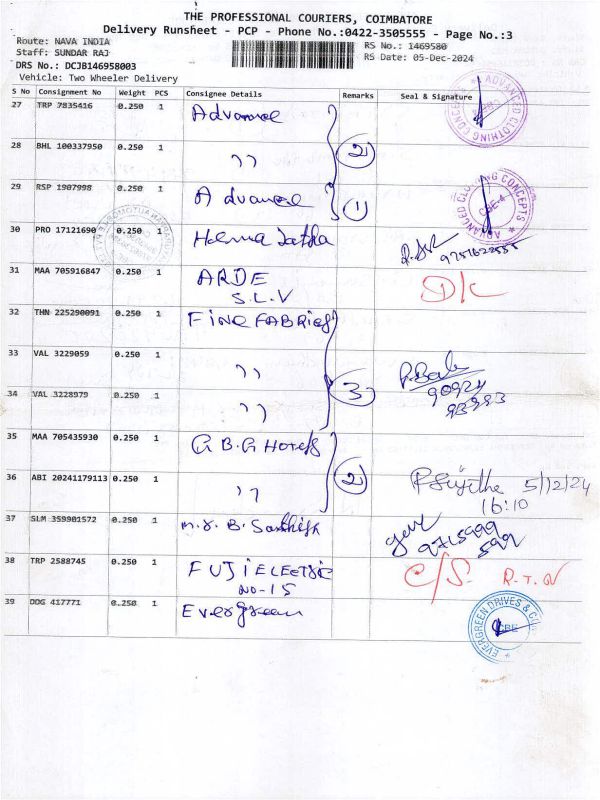 THE PROFESSIONAL COURIERS, COIMBATORE
Delivery Runsheet - PCP - Phone No.:0422-3505555 - Page No.:3
Route: NAVA INDIA
RS No.: 1469580
Staff: SUNDAR RAJ
RS Date: 05-Dec-2024
DRS No.: DCJB146958003
Vehicle: Two Wheeler Delivery
S No Consignment No Weight PCS Consignee Details Remarks Seal & Signature
27 TRP 7835416 0.250 1 Advance
ADVANCED CLOTHING CONCEPTS
28 BHL 100337950 0.250 1 ,, 2
29 RSP 1907998 0.250 1 Advance 1
ADVANCED CLOTHING CONCEPTS
CBE-4
30 PRO 17121690 0.250 1 Hema Latha
31 MAA 705916847 0.250 1 ARDE
S.L.V
D/L
32 THN 225290091 0.250 1 FINE FABRICS
33 VAL 3229059 0.250 1 ,, 3
90924
93993
34 VAL 3228979 0.250 1 ,,
35 MAA 705435930 0.250 1 G B. G Hotels
36 ABI 20241179113 0.250 1 ,, 2
5/12/24
16:10
37 SLM 359901572 0.250 1 M.S. B. Santhish
9715999
599
38 TRP 2588745 0.250 1 FUJI ELECTRIC
NO-15
C/S. R.T.O
39 DDG 417771 0.250 1 Evergreen
EVERGREEN DRIVES &
CBE